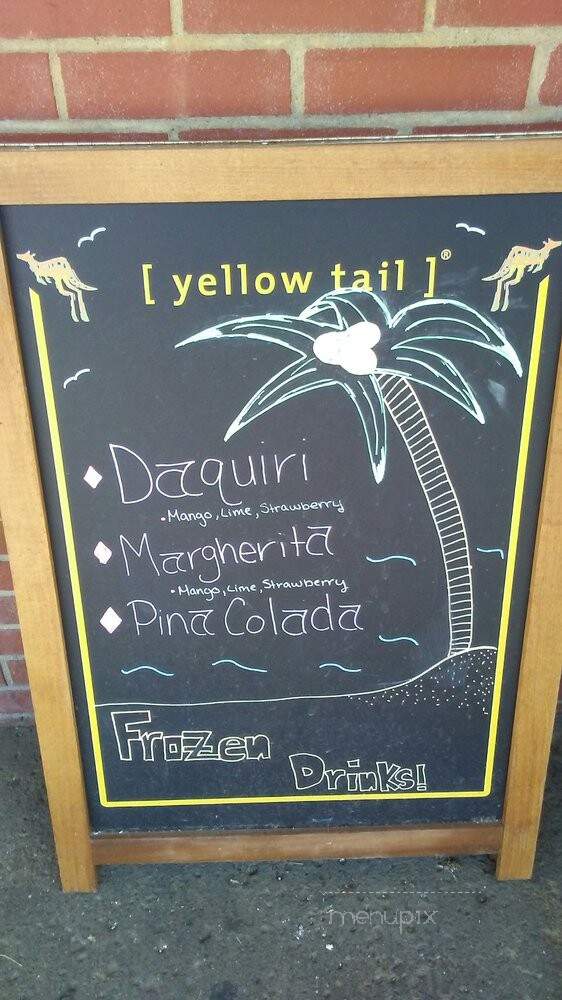 [ yellow tail ]®
Daquiri
• Mango, Lime, Strawberry
Margherita
• Mango, Lime, Strawberry
Pina Colada
Frozen
Drinks!
menupix